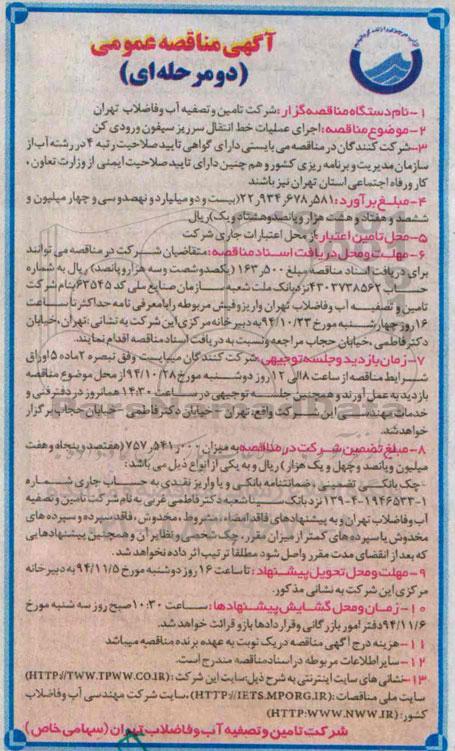 آگهی مناقصه عمومی
(دو مرحله ای)
۱- نام دستگاه مناقصه گزار: شرکت تامین و تصفیه آب و فاضلاب تهران
۲- موضوع مناقصه: اجرای عملیات خط انتقال سرریز سیفون ورودی کن
۳- شرکت کنندگان در مناقصه می بایستی دارای گواهی تایید صلاحیت رتبه ۴ در رشته آب از
سازمان مدیریت و برنامه ریزی کشور و هم چنین دارای تایید صلاحیت ایمنی از وزارت تعاون،
کار و رفاه اجتماعی استان تهران نیز باشند
۴- مبلغ برآورد: ۲۲٫۹۳۴٫۶۷۸٫۵۸۱ (بیست و دو میلیارد و نهصد و سی و چهار میلیون و
ششصد و هفتاد و هشت هزار و پانصد و هشتاد و یک) ریال
۵- محل تامین اعتبار: از محل اعتبارات جاری شرکت
۶- مهلت و محل دریافت اسناد مناقصه: متقاضیان شرکت در مناقصه می توانند
برای دریافت اسناد مناقصه مبلغ ۱۶۳٫۵۰۰ (یکصد و شصت و سه هزار و پانصد) ریال به شماره
حساب ۴۳۰۳۷۳۸۵۶۲ نزد بانک ملت شعبه سازمان صنایع ملی کد ۶۳۵۴۵ بنام شرکت
تامین و تصفیه آب و فاضلاب تهران واریز و فیش مربوطه را با معرفی نامه حداکثر تا ساعت
۱۶ روز چهارشنبه مورخ ۹۴/۱۰/۲۳ به دبیرخانه مرکزی این شرکت به نشانی: تهران، خیابان
دکتر فاطمی، خیابان حجاب مراجعه و نسبت به دریافت اسناد مناقصه اقدام نمایند.
۷- زمان بازدید و جلسه توجیهی: شرکت کنندگان میبایست وفق تبصره ۲ ماده ۵ اوراق
شرایط مناقصه از ساعت ۸ الی ۱۲ روز دوشنبه مورخ ۹۴/۱۰/۲۸ از محل موضوع مناقصه
بازدید به عمل آورند و همچنین جلسه توجیهی در ساعت ۱۴:۳۰ همانروز در دفتر فنی و
خدمات مهندسی این شرکت واقع، تهران - خیابان دکتر فاطمی - خیابان حجاب برگزار
خواهد شد.
۸- مبلغ تضمین شرکت در مناقصه: به میزان ۷۵۷٫۵۴۱٫۰۰۰ (هفتصد و پنجاه و هفت
میلیون و پانصد و چهل و یک هزار) ریال و به یکی از انواع ذیل می باشد:
چک بانکی تضمینی، ضمانتنامه بانکی و یا واریز نقدی به حساب جاری شماره
۱۳۹-۴-۱۹۴۶۵۳۳-۱ نزد بانک سینا شعبه دکتر فاطمی غربی به نام شرکت تامین و تصفیه
آب و فاضلاب تهران و به پیشنهادهای فاقد امضاء، مشروط، مخدوش، فاقد سپرده و سپرده های
مخدوش یا سپرده های کمتر از میزان مقرر، چک شخصی و نظایر آن و همچنین پیشنهادهایی
که بعد از انقضای مدت مقرر واصل شود مطلقا ترتیب اثر داده نخواهد شد.
۹- مهلت و محل تحویل پیشنهاد: تا ساعت ۱۶ روز دوشنبه مورخ ۹۴/۱۱/۵ به دبیرخانه
مرکزی این شرکت به نشانی مذکور.
۱۰- زمان و محل گشایش پیشنهادها: ساعت ۱۰:۳۰ صبح روز سه شنبه مورخ
۹۴/۱۱/۶ دفتر امور بازرگانی و قراردادها بازو قرائت خواهد شد.
۱۱- هزینه درج آگهی مناقصه در یک نوبت به عهده برنده مناقصه میباشد
۱۲- سایر اطلاعات مربوطه در اسناد مناقصه مندرج است.
۱۳- نشانی های سایت اینترنتی به شرح ذیل: سایت این شرکت: (HTTP://TWW.TPWW.CO.IR)
سایت ملی مناقصات: (HTTP://IETS.MPORG.IR)، سایت شرکت مهندسی آب و فاضلاب
کشور: (HTTP:WWW.NWW.IR)
شرکت تامین و تصفیه آب و فاضلاب تهران (سهامی خاص)